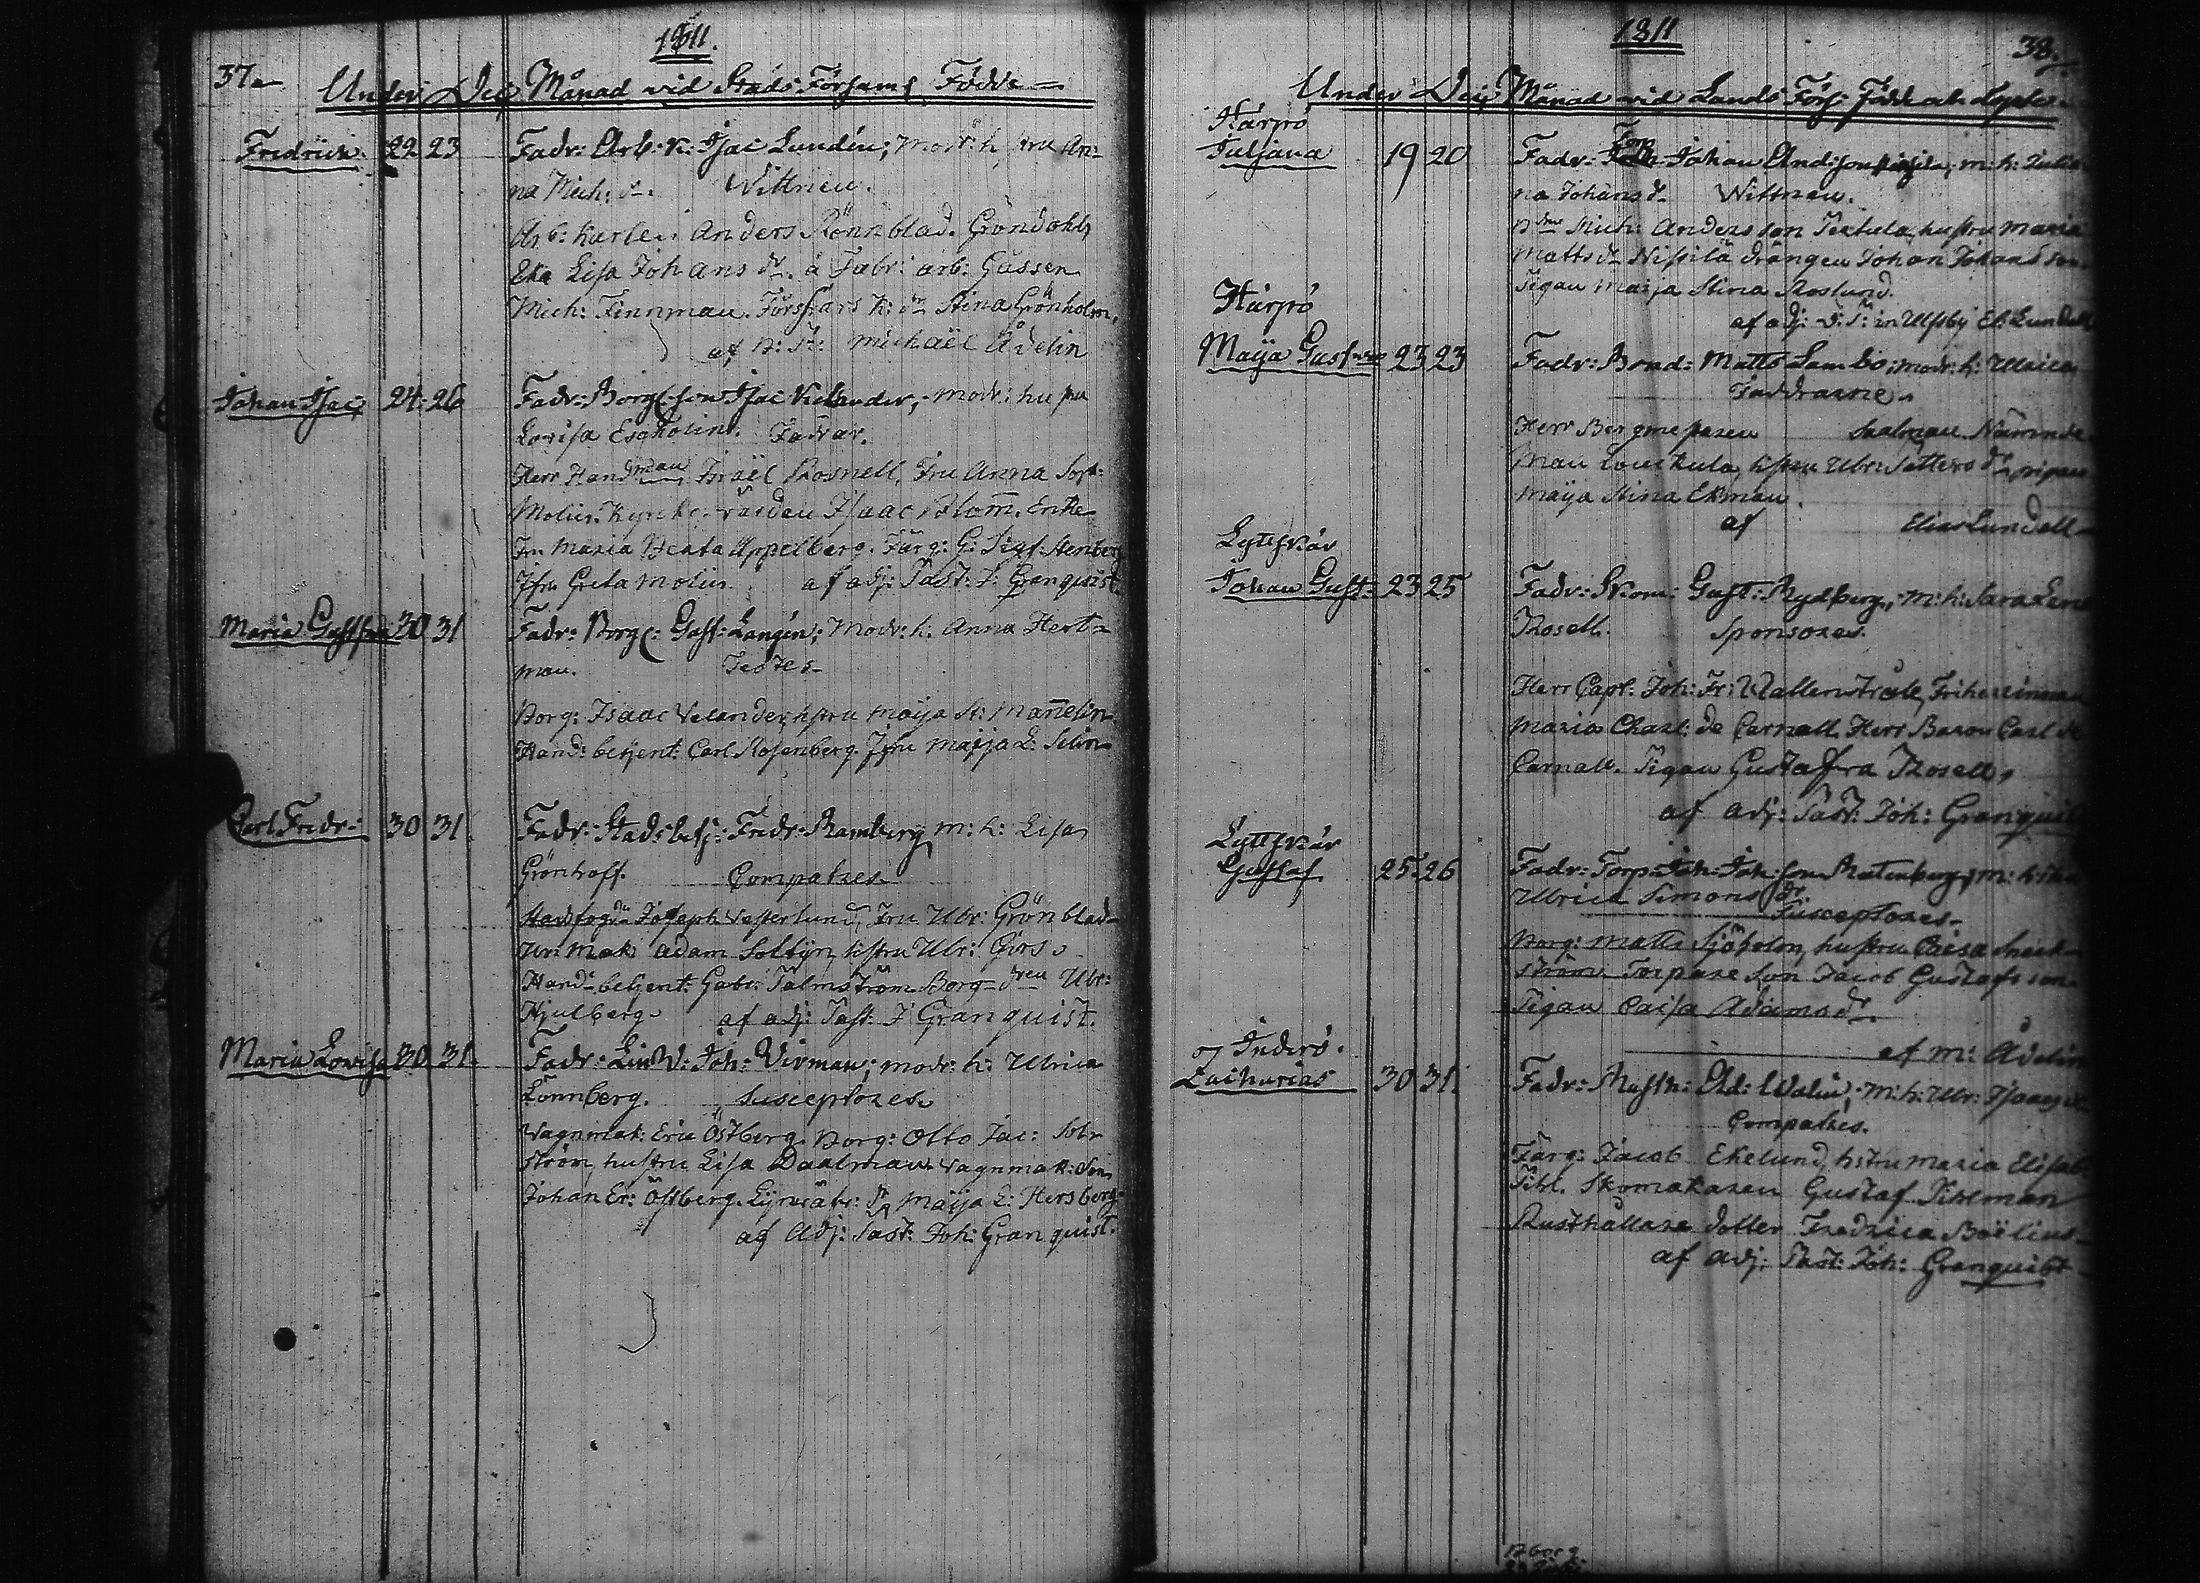 1811.
37.
Under Dec Månad vid Stads Församl Födde
Fredrich 22 23 Fadr: Arb: k: Isac Lundén; Modr: hustru An-
na Mich: dr. Wittnen.
Arb: karlen Anders Rönnblad. Gröndahls
Eka Lisa Johans dr. å Fabr: arb: Gåssen
Mich: Finnman. Försfars h: dr Stina Grönholm,
af Michaël Ådelin
Johan Isac 24 26 Fadr: Borg: son Isac Velander, modr: hustru
Lovisa Escholin. Fadrar.
Herr Handman Israël Rosnell, Fru Anna Soph:
Molin. Kyrko-värden Isaac Blom. Enke
Fru Maria Beata Appelberg. Färg: G: Sigf: Stenberg
Jfru Greta Molin af adj: Past: J: Granquist
Maria Gustfva 30 31 Fadr: Borg: Gust: Langén; Modr: h. Anna Hert-
man. Testes
Borg: Isaac Velander, hstru Maija St: Mannelin
Hand: betjent: Carl Rosenberg. Jfru Maija L: Selin
Carl Fredr: 30 31 Fadr: Stadsbetj: Fredr: Ramberg m: h: Lisa
Grönhoff. Compatres
Stadsfogden Joseph Vesterlund, Fru Ulr: Grönblad
Ur: Mak: Adam Soltijn, hstru Ulr: Girs
Hand-betjent: Gabr: Palmström Borg-dren Ulr:
Hjulberg af adj: Past: J Granquist.
Maria Lovisa 30 31. Fadr: Joh: Virman; modr: h: Ulrica
Lönnberg. Susceptores
Vagnmak: Eric Östberg. Borg: Otto Jac: Sol-
ström, hustru Lisa Daalman. Vagnmak: Son
Johan Er: Östberg. dr Maija L: Hersberg
af Adj: Past: Joh: Granquist.
1811
38.
Under Dec Månad vid Lands Förs: Födde och Döpte
Härpö
Juljana 19 20 Fadr: Johan Andson m: h: Julia
na Johans dr Wittnen.
Mich: Andersson Pertula, hustru Maria
Matts dr Nissilä drängen Johan Johansson
Pigan Maija Stina Roslund.
af adj: in Ulfsby El: Lundell
Härpö
Maija Gustava 23 23 Fadr: Bond: Matts Lambo; modr: h: Ulrica
Faddrarne
Herr Bergmestaren Saalman Nämnde-
man Louckula, hstru Ulr: Pigan
Maija Stina Ekman.
af Elias Lundell
Lyttskär
Johan Gust: 23 25 Fadr: Skom: Gust: Rydberg; m: h: Sara Lena
Rosell. Sponsores.
Herr Capt: Joh: Fr: Wallenstråle, Friherrinnan
Maria Charl: de Carnall. Herr Baron Carl de
Carnall. Pigan Gustafva Rosell,
af adj: Past: Joh: Granquist
Lyttskär
Gustaf 25 26 Fadr: Torp: Joh: Joh: son m: h:
Ulrica Simons dr.
Susceptores
Borg: Matts Sjöholm, hustru Caisa Sneck-
ström Torpare Son Jacob Gustafsson
Pigan Caisa Adams dr.
af M: Ådelin
Inderö.
Zacharias 30 31. Fadr: Rusth: Ad: Walin; m: h: Ulr: Isaacs dr
Compatres.
Färg: Jacob Ekelund, hstru Maria Elisab:
Pihl. Skomakaren Gustaf Pihlman
Rusthållare dotter Fredrica Boëlius
af adj: Past: Joh: Granquist